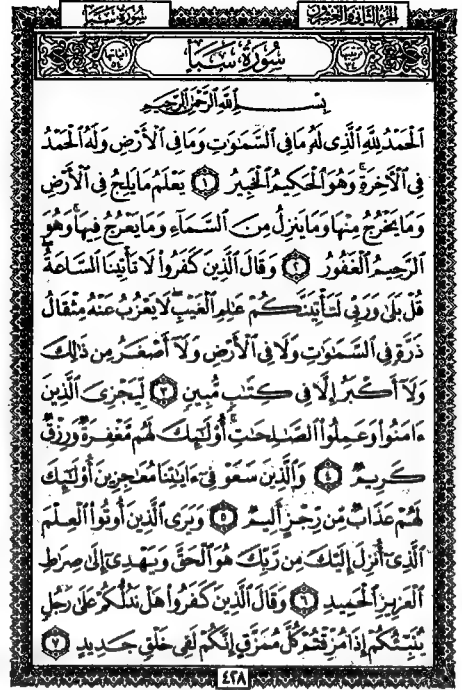 الجزء الثاني والعشرون
سورة سبأ
سُورَةُ سَبَأ
بِسْمِ ٱللَّهِ ٱلرَّحْمَٰنِ ٱلرَّحِيمِ
ٱلْحَمْدُ لِلَّهِ ٱلَّذِى لَهُۥ مَا فِى ٱلسَّمَٰوَٰتِ وَمَا فِى ٱلْأَرْضِ وَلَهُ ٱلْحَمْدُ
فِى ٱلْأَخِرَةِ ۚ وَهُوَ ٱلْحَكِيمُ ٱلْخَبِيرُ ١ يَعْلَمُ مَا يَلِجُ فِى ٱلْأَرْضِ
وَمَا يَخْرُجُ مِنْهَا وَمَا يَنزِلُ مِنَ ٱلسَّمَآءِ وَمَا يَعْرُجُ فِيهَا ۚ وَهُوَ
ٱلرَّحِيمُ ٱلْغَفُورُ ٢ وَقَالَ ٱلَّذِينَ كَفَرُوا۟ لَا تَأْتِينَا ٱلسَّاعَةُ ۖ
قُلْ بَلَىٰ وَرَبِّى لَتَأْتِيَنَّكُمْ عَٰلِمِ ٱلْغَيْبِ ۖ لَا يَعْزُبُ عَنْهُ مِثْقَالُ
ذَرَّةٍ فِى ٱلسَّمَٰوَٰتِ وَلَا فِى ٱلْأَرْضِ وَلَآ أَصْغَرُ مِن ذَٰلِكَ
وَلَآ أَكْبَرُ إِلَّا فِى كِتَٰبٍ مُّبِينٍ ٣ لِّيَجْزِىَ ٱلَّذِينَ
ءَامَنُوا۟ وَعَمِلُوا۟ ٱلصَّٰلِحَٰتِ ۚ أُو۟لَٰٓئِكَ لَهُم مَّغْفِرَةٌ وَرِزْقٌ
كَرِيمٌ ٤ وَٱلَّذِينَ سَعَوْ فِىٓ ءَايَٰتِنَا مُعَٰجِزِينَ أُو۟لَٰٓئِكَ
لَهُمْ عَذَابٌ مِّن رِّجْزٍ أَلِيمٌ ٥ وَيَرَى ٱلَّذِينَ أُوتُوا۟ ٱلْعِلْمَ
ٱلَّذِىٓ أُنزِلَ إِلَيْكَ مِن رَّبِّكَ هُوَ ٱلْحَقَّ وَيَهْدِىٓ إِلَىٰ صِرَٰطِ
ٱلْعَزِيزِ ٱلْحَمِيدِ ٦ وَقَالَ ٱلَّذِينَ كَفَرُوا۟ هَلْ نَدُلُّكُمْ عَلَىٰ رَجُلٍ
يُنَبِّئُكُمْ إِذَا مُزِّقْتُمْ كُلَّ مُمَزَّقٍ إِنَّكُمْ لَفِى خَلْقٍ جَدِيدٍ ٧
٤٢٨